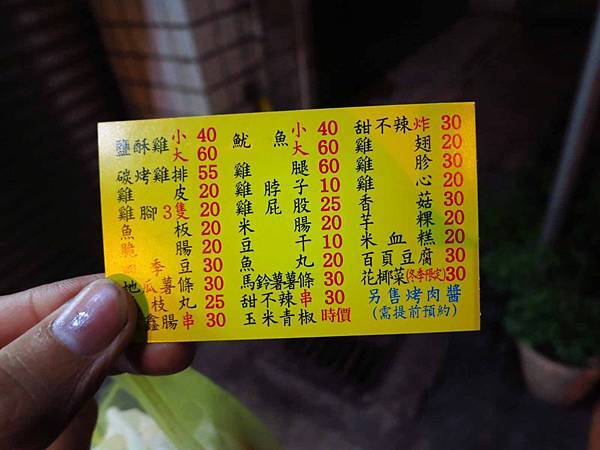 鹽酥雞小 40
大 60
碳烤雞排 55
雞皮 20
雞腳3隻 20
魚板 20
脆腸 20
季豆 30
地瓜薯條 30
枝丸 25
鑫腸串 30
魷魚小 40
大 60
雞腿 60
雞脖子 10
雞屁股 25
米腸 20
豆干 10
魚丸 20
馬鈴薯薯條 30
甜不辣串 30
玉米青椒 時價
甜不辣炸 30
雞翅 20
雞胗 30
雞心 20
香菇 30
芋粿 20
米血糕 20
百頁豆腐 30
花椰菜(冬季限定)30
另售烤肉醬
(需提前預約)